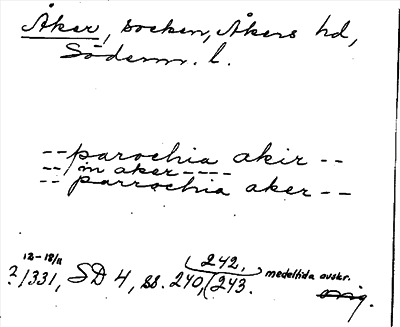 Åker, socken, Åkers hd,
Söderm. l.
--parochia akir--
--in aker----
--parrochia aker--
12-18/11 242, medeltida avskr.
?/1331, SD 4, ss. 240, 243. orig.